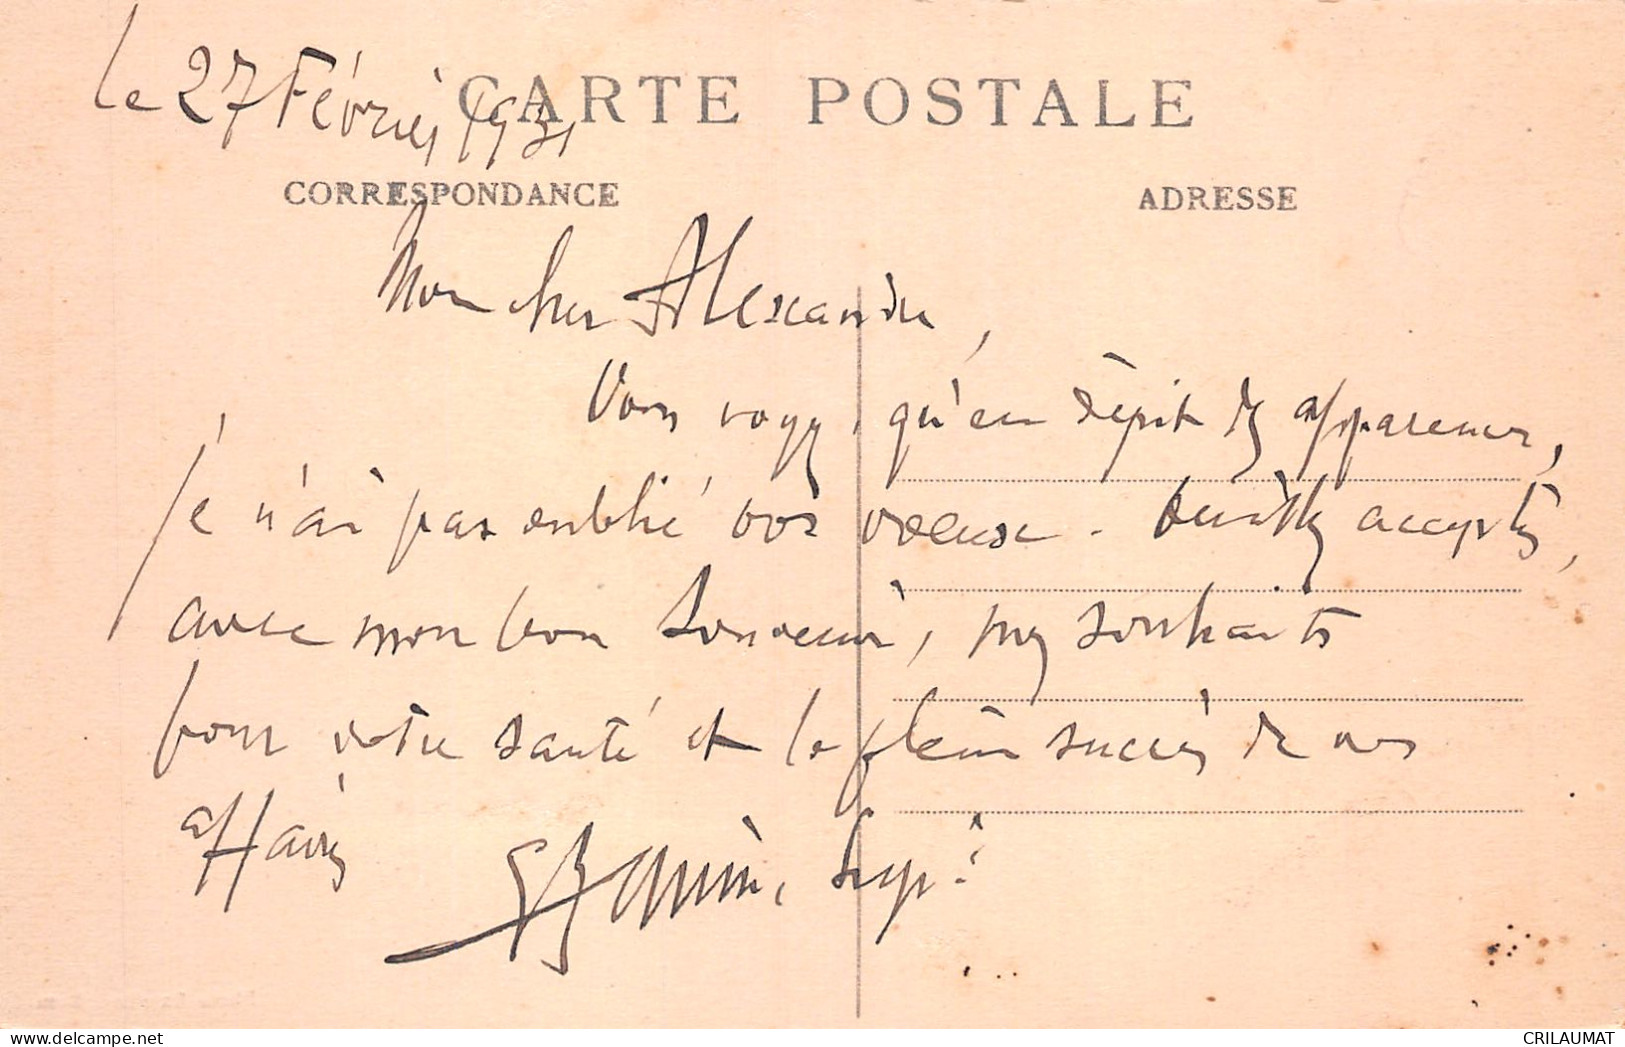 le 27 Février 1931
CARTE POSTALE
CORRESPONDANCE
ADRESSE
Mon cher Alexandre,
Vous voyez, qu'en dépit des apparences,
je n'ai pas oublié vos
. Veuillez acceptez,
avec mon bon Souvenir, mes souhaits
pour votre santé et le plein succès de vos
affaires
CRILAUMAT